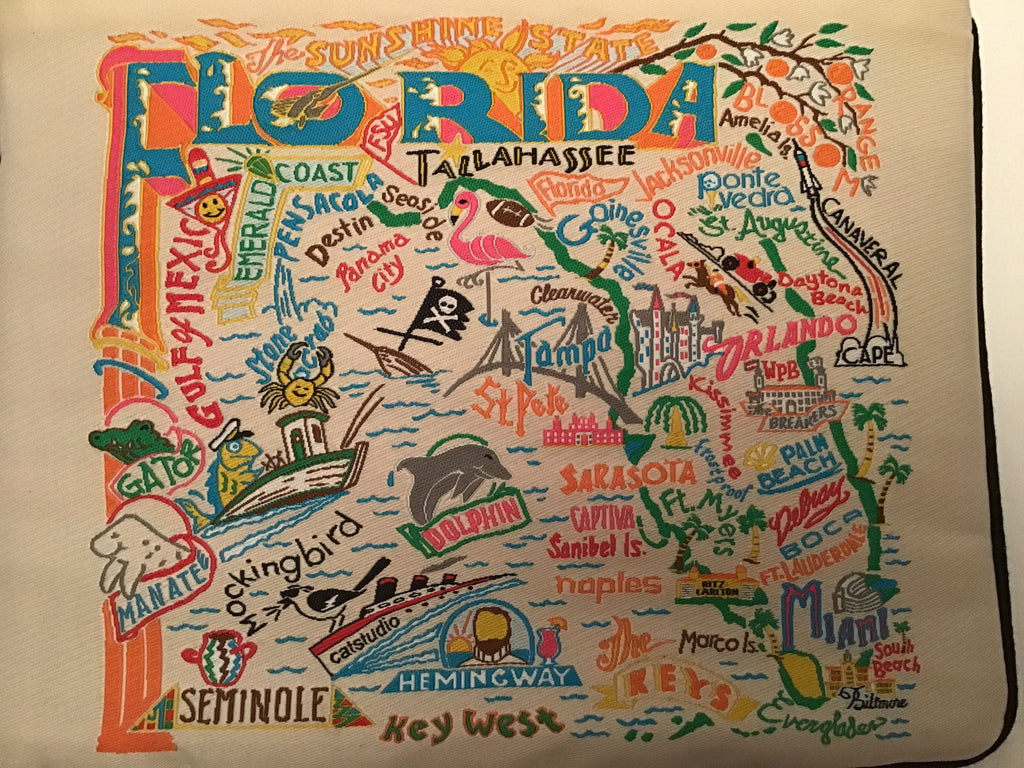 The SUNSHINE STATE
FLORIDA
ORANGE
BLOSSOM
FSU
TALLAHASSEE
Amelia Is.
EMERALD COAST
PENSACOLA
Destin
Seaside
Panama
City
Florida
Jacksonville
Ponte
Vedra
Gainesville
OCALA
St. Augustine
CANAVERAL
CAPE
Daytona
Beach
GULF of MEXICO
Stone
Crabs
Clearwater
Tampa
St. Pete
ORLANDO
Kissimmee
WPB
BREAKERS
GATOR
SARASOTA
Frostproof
PALM
BEACH
DOLPHIN
CAPTIVA
Sanibel Is.
Ft. Myers
Delray
BOCA
FT. LAUDERDALE
MANATEE
Mockingbird
naples
RITZ
CARLTON
MIAMI
catstudio
HEMINGWAY
The
KEYS
Marco Is.
South
Beach
Biltmore
SEMINOLE
Key West
Everglades